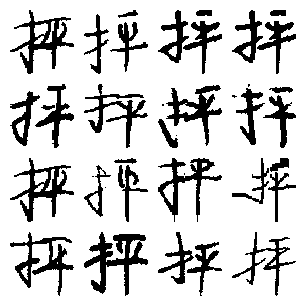 抨抨抨抨
抨抨抨抨
抨抨抨抨
抨抨抨抨